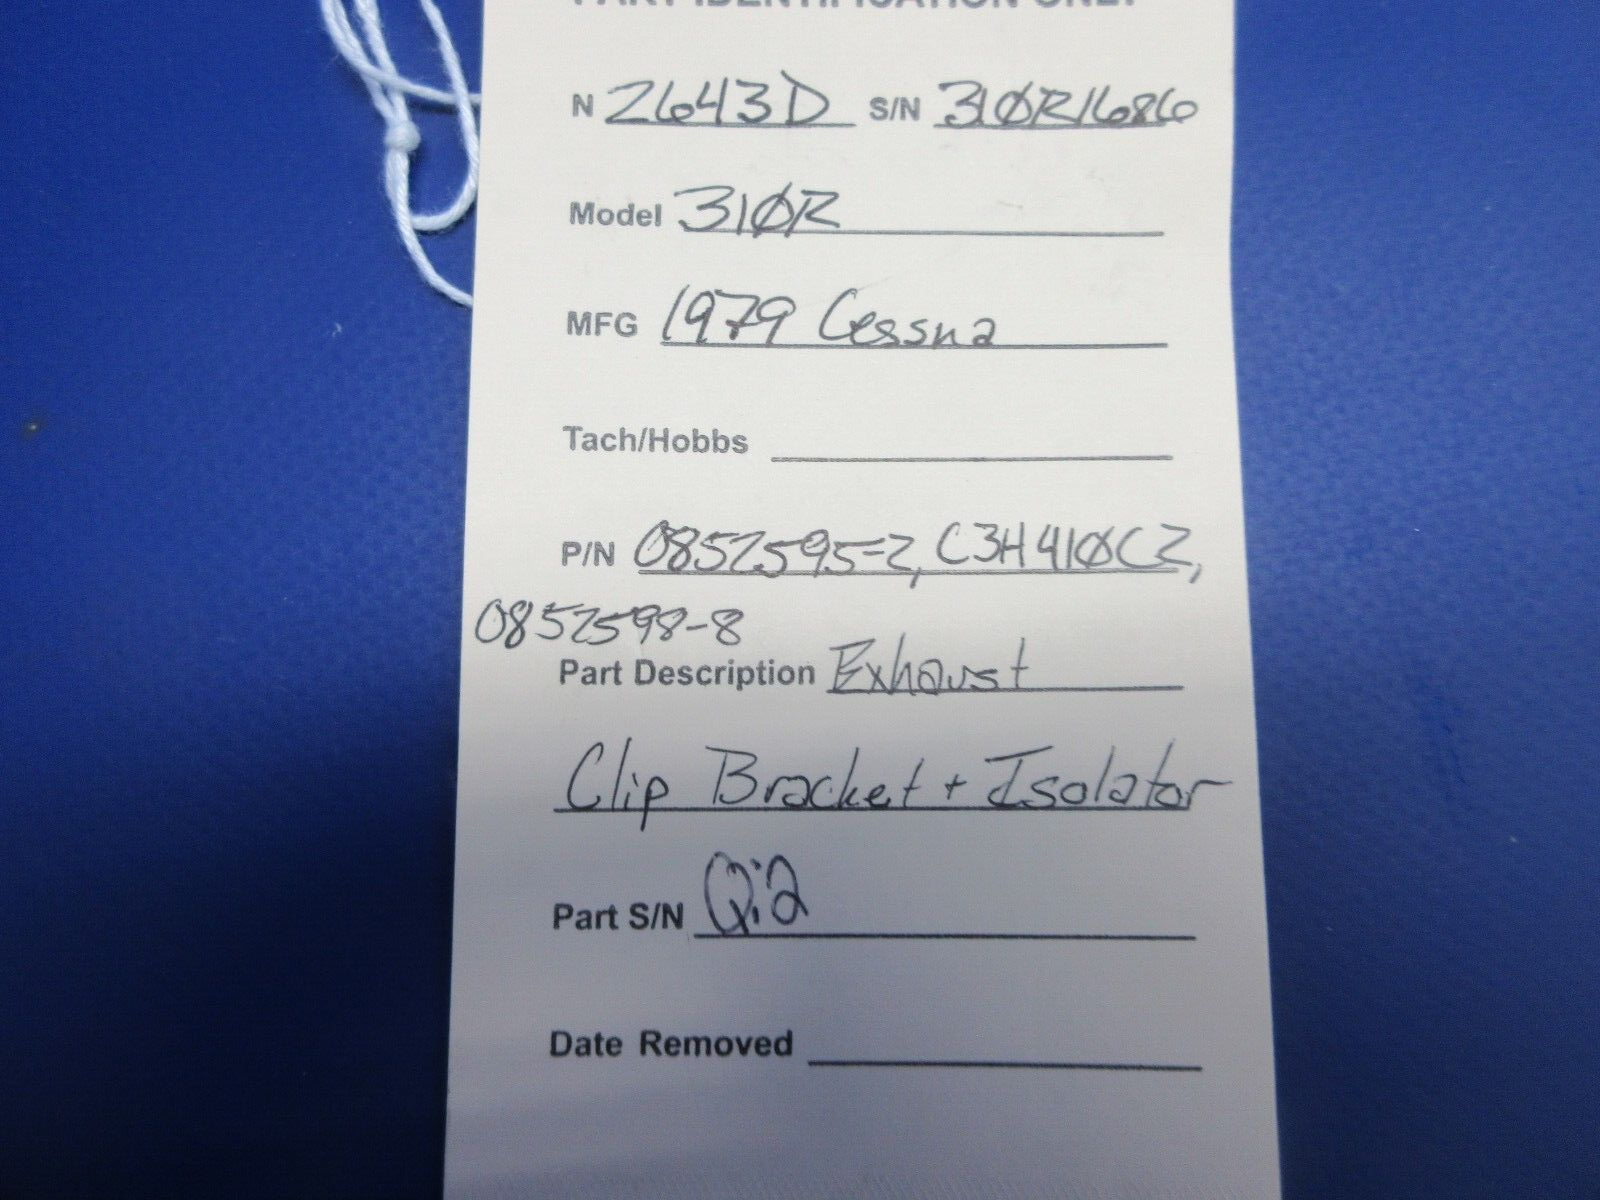 PART IDENTIFICATION ONLY
N 2643D S/N 310R1686
Model 310R
MFG 1979 Cessna
Tach/Hobbs
P/N 0852595-2, C3H410C2,
0852598-8
Part Description Exhaust
Clip Bracket + Isolator
Part S/N Q:2
Date Removed